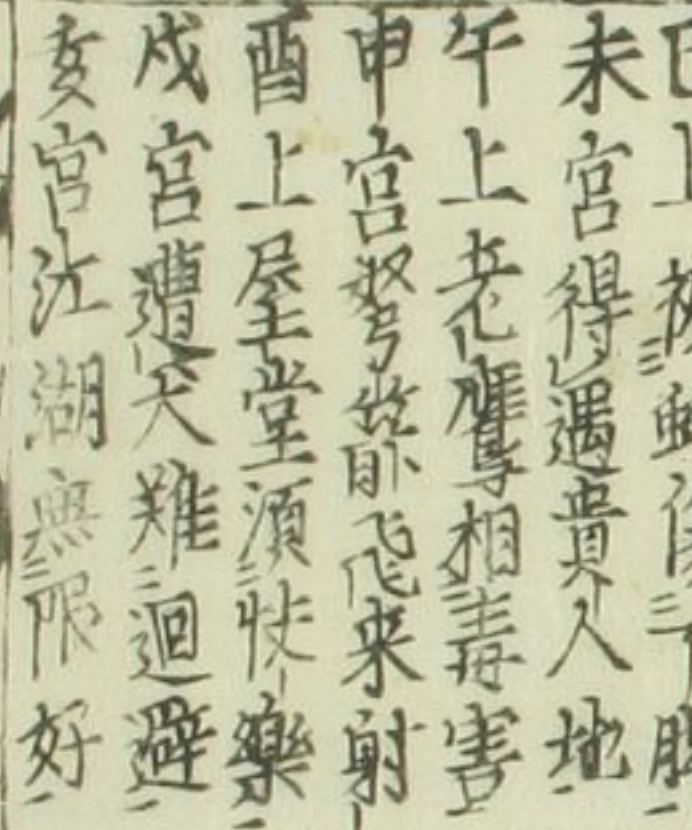 未宮得遇貴人地
午上老鷹相毒害
申宮弩箭飛来射
酉上屋堂須快樂
戌宮遭犬難迴避
亥宮江湖無限好